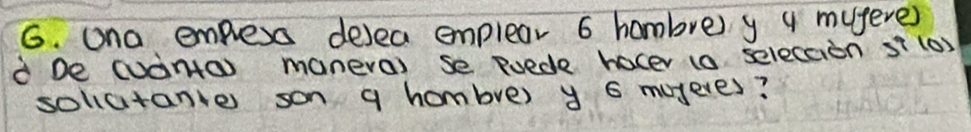 6. Una empresa desea emplear 6 hombres y 4 mujeres
¿ De cuántas maneras se puede hacer la selección si los
solicitantes son 9 hombres y 6 mujeres?